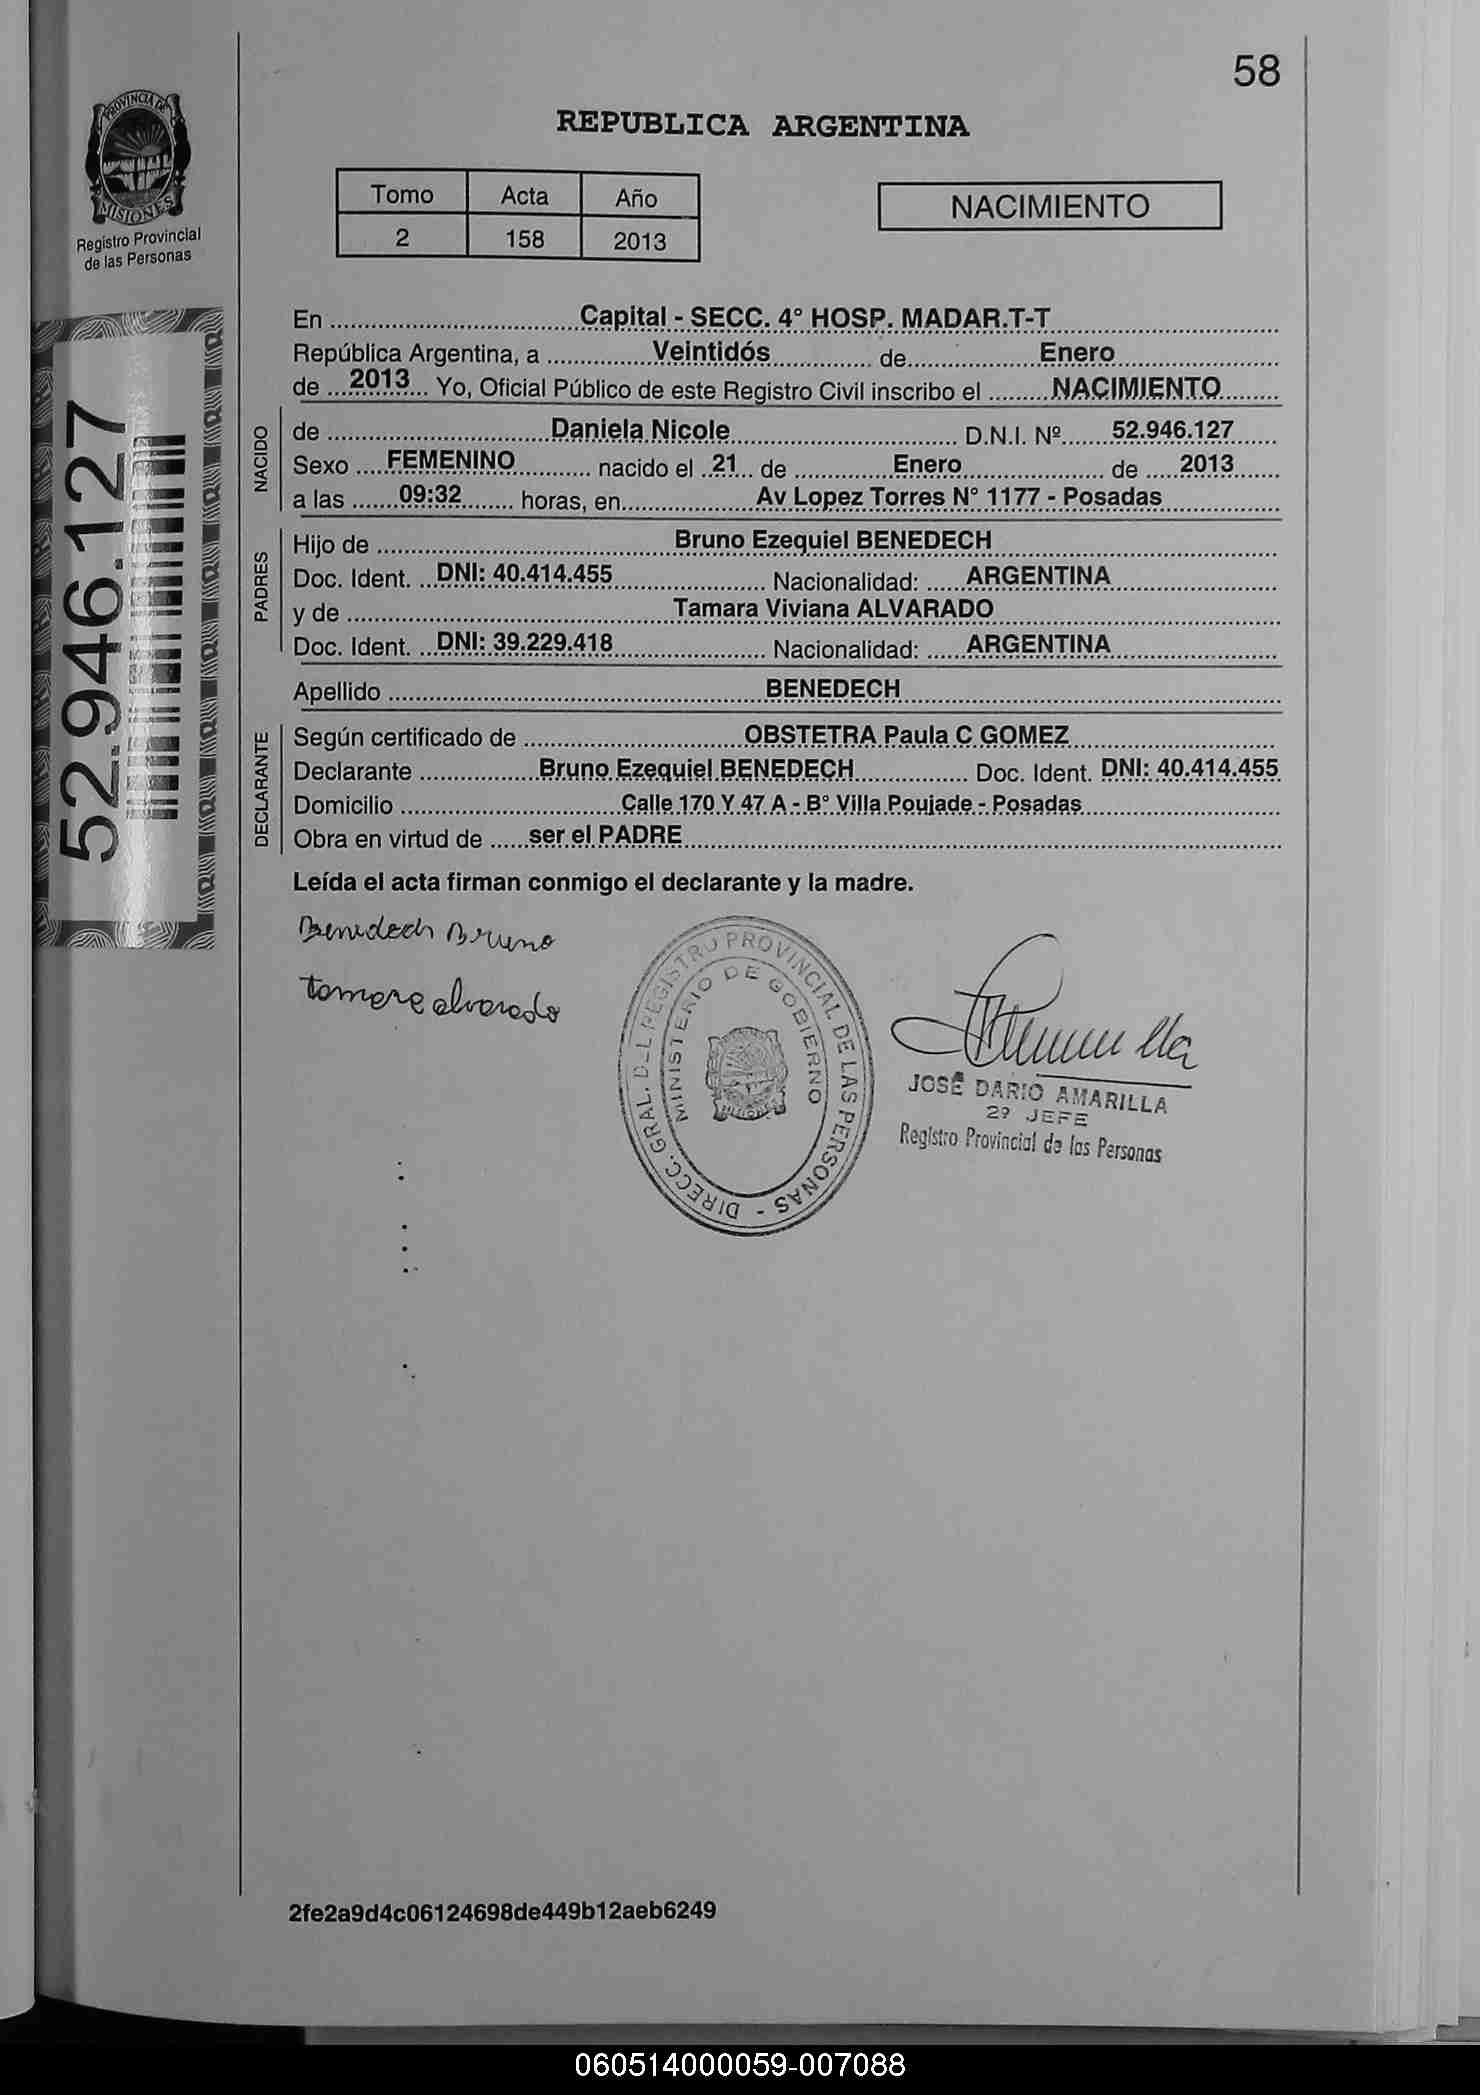 58
PROVINCIA DE
MISIONES
Registro Provincial
de las Personas
REPUBLICA ARGENTINA
Tomo Acta Año
2 158 2013
NACIMIENTO
52.946.127
En ..... Capital - SECC. 4° HOSP. MADAR.T-T .....
República Argentina, a ..... Veintidós ..... de ..... Enero .....
de ... 2013 ... Yo, Oficial Público de este Registro Civil inscribo el ..... NACIMIENTO .....
NACIDO
de ..... Daniela Nicole ..... D.N.I. Nº ..... 52.946.127 .....
Sexo .... FEMENINO ..... nacido el .. 21 .. de ..... Enero ..... de ..... 2013 .....
a las ..... 09:32 ..... horas, en ..... Av Lopez Torres N° 1177 - Posadas .....
PADRES
Hijo de ..... Bruno Ezequiel BENEDECH .....
Doc. Ident. ... DNI: 40.414.455 ..... Nacionalidad: ..... ARGENTINA .....
y de ..... Tamara Viviana ALVARADO .....
Doc. Ident. ... DNI: 39.229.418 ..... Nacionalidad: ..... ARGENTINA .....
Apellido ..... BENEDECH .....
DECLARANTE
Según certificado de ..... OBSTETRA Paula C GOMEZ .....
Declarante ..... Bruno Ezequiel BENEDECH ..... Doc. Ident. DNI: 40.414.455
Domicilio ..... Calle 170 Y 47 A - B° Villa Poujade - Posadas .....
Obra en virtud de ..... ser el PADRE .....
Leída el acta firman conmigo el declarante y la madre.
Benedech Bruno
tamara alvarado
DIRECC. GRAL. DEL REGISTRO PROVINCIAL DE LAS PERSONAS -
MINISTERIO DE GOBIERNO
MISIONES
JOSÉ DARIO AMARILLA
2º JEFE
Registro Provincial de las Personas
2fe2a9d4c06124698de449b12aeb6249
060514000059-007088